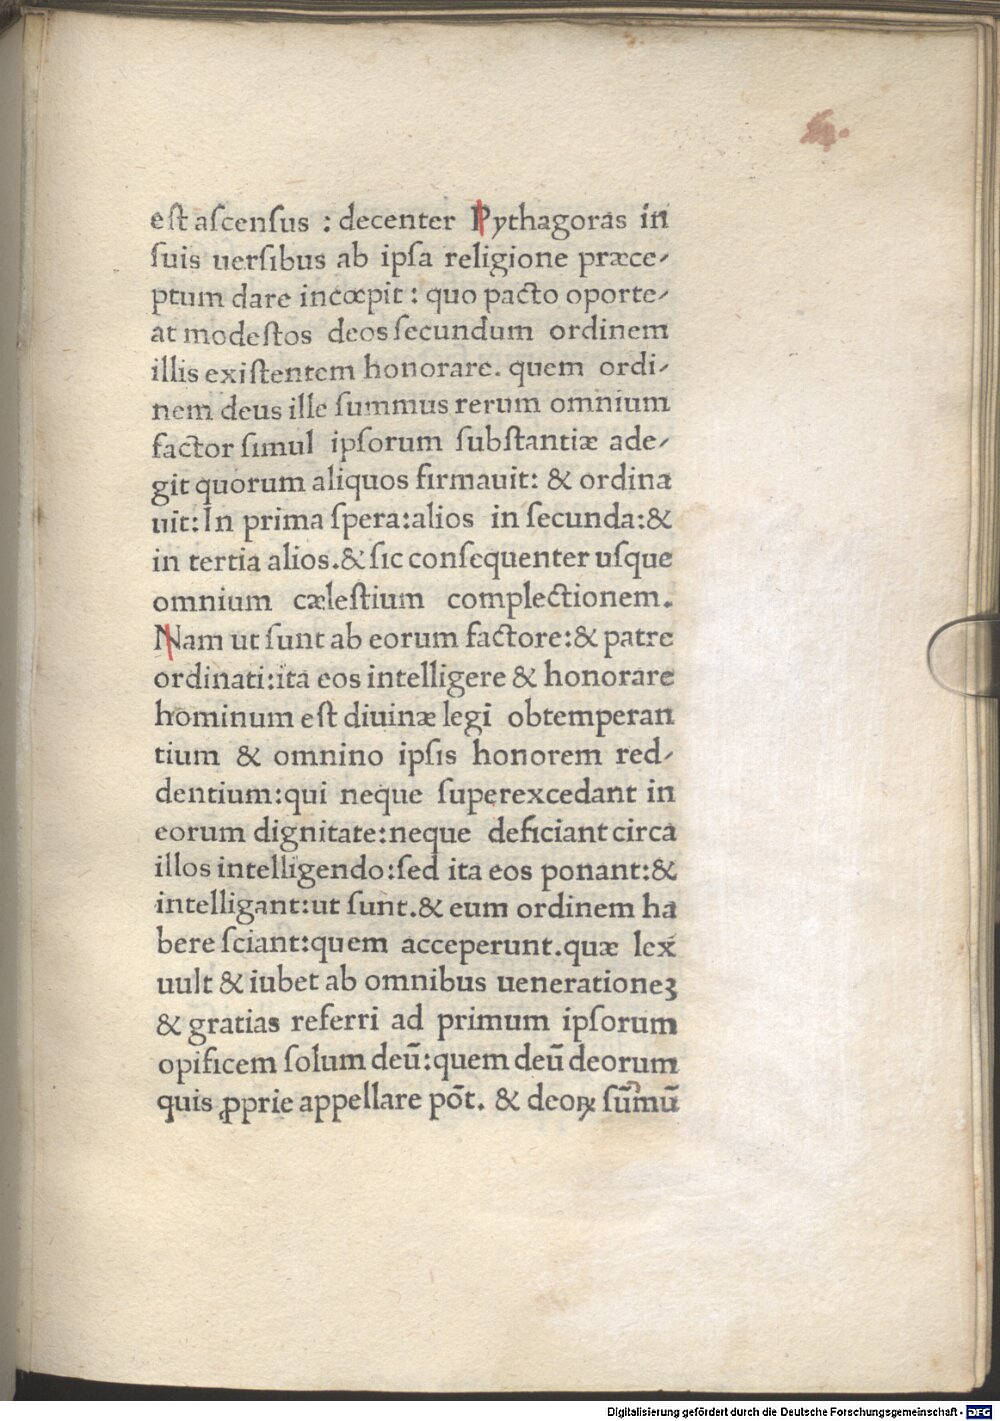 est ascenſus : decenter Pythagoras in
ſuis uerſibus ab ipſa religione præce⸗
ptum dare incœpit : quo pacto oporte⸗
at modeſtos deos ſecundum ordinem
illis exiſtentem honorare. quem ordi⸗
nem deus ille ſummus rerum omnium
factor ſimul ipſorum ſubſtantiæ ade⸗
git quorum aliquos firmauit: & ordina
uit: In prima ſpera:alios in ſecunda:&
in tertia alios.& ſic conſequenter uſque
omnium cæleſtium complectionem.
Nam ut ſunt ab eorum factore:& patre
ordinati:ita eos intelligere & honorare
hominum eſt diuinæ legi obtemperan
tium & omnino ipſis honorem red⸗
dentium:qui neque ſuperexcedant in
eorum dignitate:neque deficiant circa
illos intelligendo:ſed ita eos ponant:&
intelligant:ut ſunt.& eum ordinem ha
bere ſciant:quem acceperunt.quæ lex
uult & iubet ab omnibus uenerationeꝫ
& gratias referri ad primum ipſorum
opificem ſolum deū:quem deū deorum
quis ꝓprie appellare pōt. & deoꝝ ſūmū
Digitalisierung gefördert durch die Deutsche Forschungsgemeinschaft - DFG